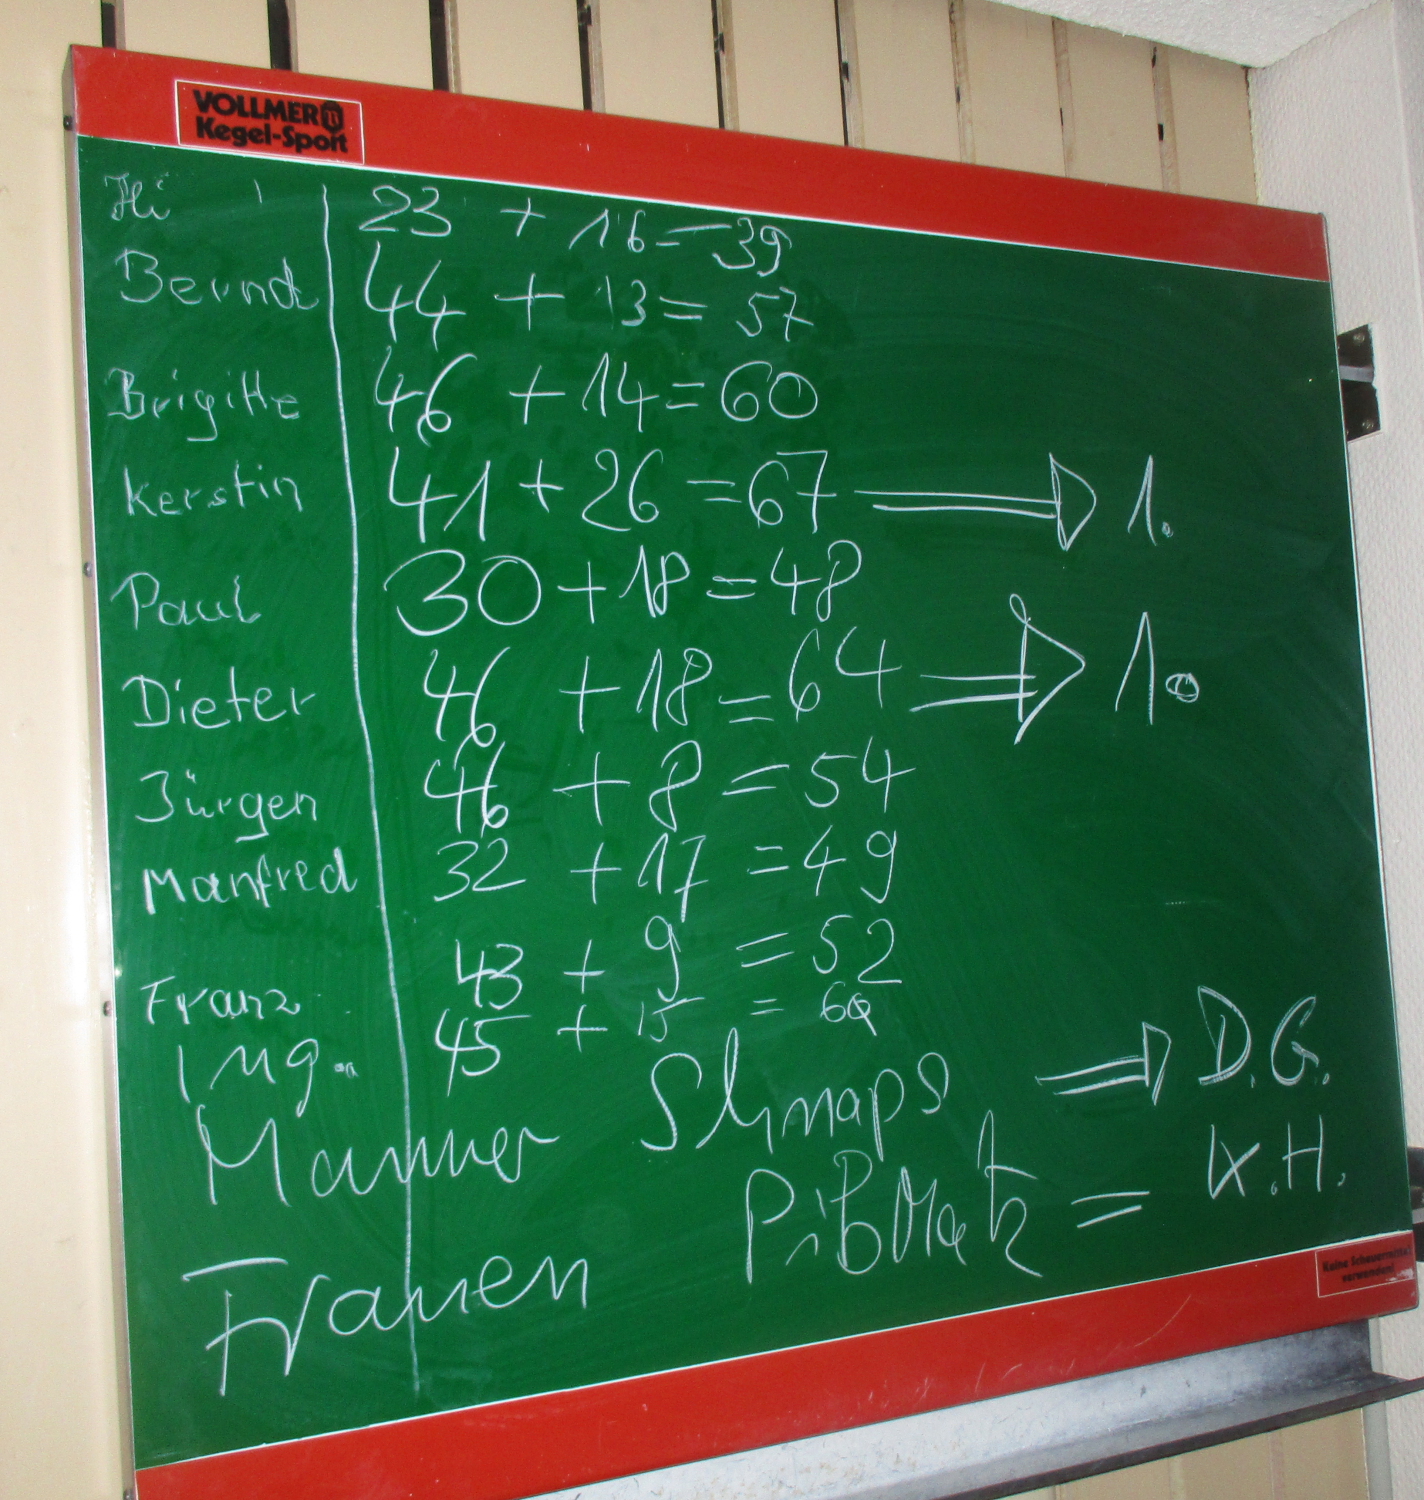 VOLLMER
Kegel-Sport
Hi 23 + 16 = 39
Bernd 44 + 13 = 57
Brigitte 46 + 14 = 60
Kerstin 41 + 26 = 67 ⇒ 1.
Paul 30 + 18 = 48
Dieter 46 + 18 = 64 ⇒ 1.
Jürgen 46 + 8 = 54
Manfred 32 + 17 = 49
Franz 43 + 9 = 52
Ing. 45 + 15 = 60
Männer Schnaps ⇒ D.G.
Frauen Pißmatz = K.H.
Keine Scheuermittel
verwenden!